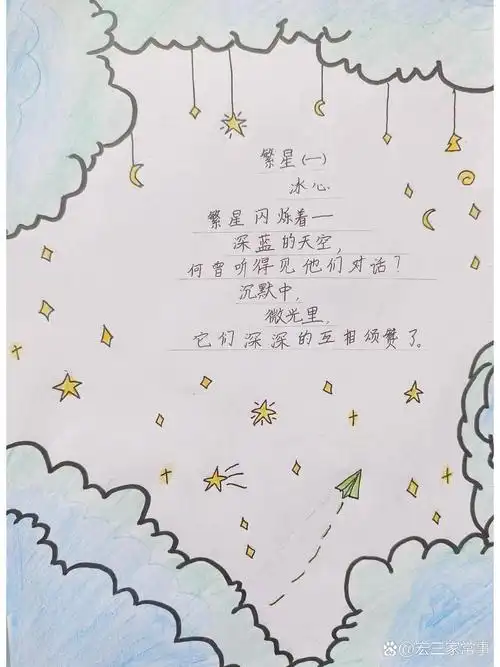 繁星(一)
冰心
繁星闪烁着—
深蓝的天空,
何曾听得见他们对话?
沉默中,
微光里,
它们深深的互相颂赞了。
宏三家常事